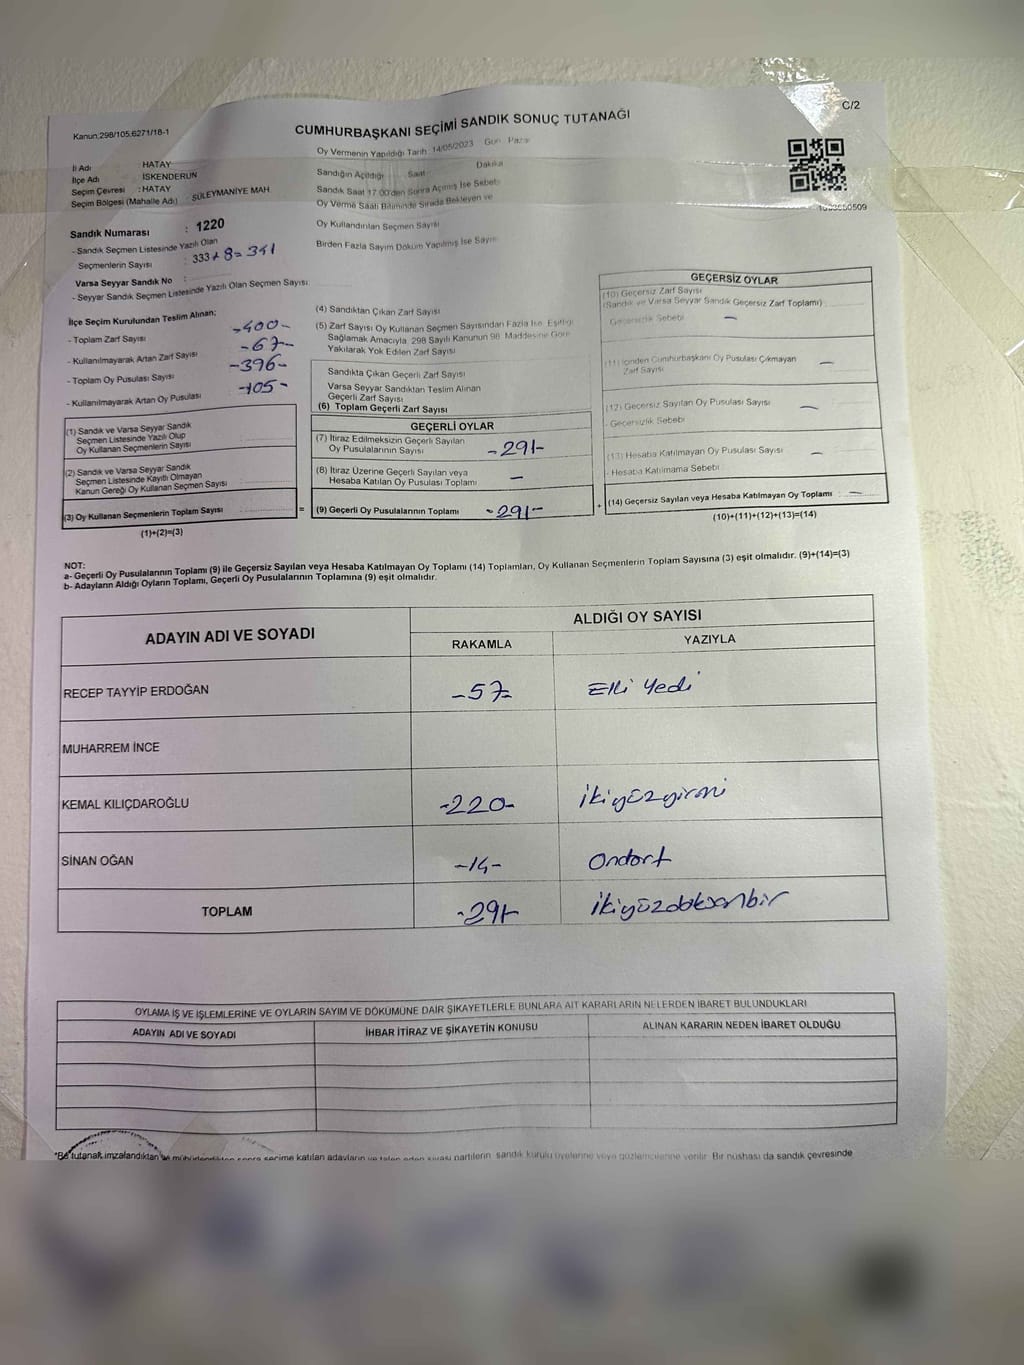 C/2
Kanun;298/105;6271/18-1
CUMHURBAŞKANI SEÇİMİ SANDIK SONUÇ TUTANAĞI
İl Adı : HATAY
İlçe Adı : İSKENDERUN
Seçim Çevresi : HATAY
Seçim Bölgesi (Mahalle Adı) : SÜLEYMANİYE MAH.
Oy Vermenin Yapıldığı Tarih : 14/05/2023 Gün : Pazar
Sandığın Açıldığı Saat Dakika
Sandık Saat 17.00'den Sonra Açılmış İse Sebebi
Oy Verme Saati Bitiminde Sırada Bekleyen ve
Oy Kullandırılan Seçmen Sayısı
Birden Fazla Sayım Döküm Yapılmış İse Sayısı
Sandık Numarası : 1220
- Sandık Seçmen Listesinde Yazılı Olan
Seçmenlerin Sayısı : 333 + 8 = 341
Varsa Seyyar Sandık No :
- Seyyar Sandık Seçmen Listesinde Yazılı Olan Seçmen Sayısı:
İlçe Seçim Kurulundan Teslim Alınan;
- Toplam Zarf Sayısı -400-
- Kullanılmayarak Artan Zarf Sayısı -67-
- Toplam Oy Pusulası Sayısı -396-
- Kullanılmayarak Artan Oy Pusulası -105-
(1) Sandık ve Varsa Seyyar Sandık
Seçmen Listesinde Yazılı Olup
Oy Kullanan Seçmenlerin Sayısı
(2) Sandık ve Varsa Seyyar Sandık
Seçmen Listesinde Kayıtlı Olmayan
Kanun Gereği Oy Kullanan Seçmen Sayısı
(3) Oy Kullanan Seçmenlerin Toplam Sayısı
(1)+(2)=(3)
(4) Sandıktan Çıkan Zarf Sayısı
(5) Zarf Sayısı Oy Kullanan Seçmen Sayısından Fazla İse, Eşitliği
Sağlamak Amacıyla, 298 Sayılı Kanunun 98. Maddesine Göre
Yakılarak Yok Edilen Zarf Sayısı
Sandıkta Çıkan Geçerli Zarf Sayısı
Varsa Seyyar Sandıktan Teslim Alınan
Geçerli Zarf Sayısı
(6) Toplam Geçerli Zarf Sayısı
=
GEÇERLİ OYLAR
(7) İtiraz Edilmeksizin Geçerli Sayılan
Oy Pusulalarının Sayısı -291-
(8) İtiraz Üzerine Geçerli Sayılan veya
Hesaba Katılan Oy Pusulası Toplamı -
(9) Geçerli Oy Pusulalarının Toplamı -291-
+
GEÇERSİZ OYLAR
(10) Geçersiz Zarf Sayısı
(Sandık ve Varsa Seyyar Sandık Geçersiz Zarf Toplamı)
Geçersizlik Sebebi -
(11) İçinden Cumhurbaşkanı Oy Pusulası Çıkmayan
Zarf Sayısı -
(12) Geçersiz Sayılan Oy Pusulası Sayısı -
- Geçersizlik Sebebi
(13) Hesaba Katılmayan Oy Pusulası Sayısı -
- Hesaba Katılmama Sebebi
(14) Geçersiz Sayılan veya Hesaba Katılmayan Oy Toplamı -
(10)+(11)+(12)+(13)=(14)
NOT:
a- Geçerli Oy Pusulalarının Toplamı (9) ile Geçersiz Sayılan veya Hesaba Katılmayan Oy Toplamı (14) Toplamları, Oy Kullanan Seçmenlerin Toplam Sayısına (3) eşit olmalıdır. (9)+(14)=(3)
b- Adayların Aldığı Oyların Toplamı, Geçerli Oy Pusulalarının Toplamına (9) eşit olmalıdır.
ADAYIN ADI VE SOYADI ALDIĞI OY SAYISI
RAKAMLA YAZIYLA
RECEP TAYYİP ERDOĞAN -57- Elli Yedi
MUHARREM İNCE
KEMAL KILIÇDAROĞLU -220- İkiyüzyirmi
SİNAN OĞAN -14- Ondört
TOPLAM -291- İkiyüzdoksanbir
OYLAMA İŞ VE İŞLEMLERİNE VE OYLARIN SAYIM VE DÖKÜMÜNE DAİR ŞİKAYETLERLE BUNLARA AİT KARARLARIN NELERDEN İBARET BULUNDUKLARI
ADAYIN ADI VE SOYADI İHBAR İTİRAZ VE ŞİKAYETİN KONUSU ALINAN KARARIN NEDEN İBARET OLDUĞU
*Bu tutanak imzalandıktan ve mühürlendikten sonra seçime katılan adayların ve talep eden siyasi partilerin sandık kurulu üyelerine veya gözlemcilerine verilir. Bir nüshası da sandık çevresinde